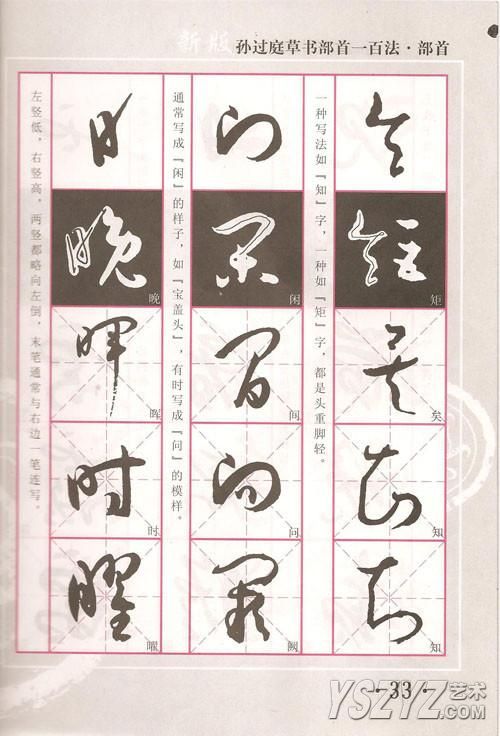 新版 孙过庭草书部首一百法·部首
矩
矣
知
知
一种写法如『知』字，一种如『矩』字，都是头重脚轻。
闲
间
问
阙
通常写成『闲』的样子，如『宝盖头』，有时写成『问』的模样。
日
晚
晖
时
曜
左竖低，右竖高，两竖都略向左倒，末笔通常与右边一笔连写。
·33·
YSZYZ艺术
.COM